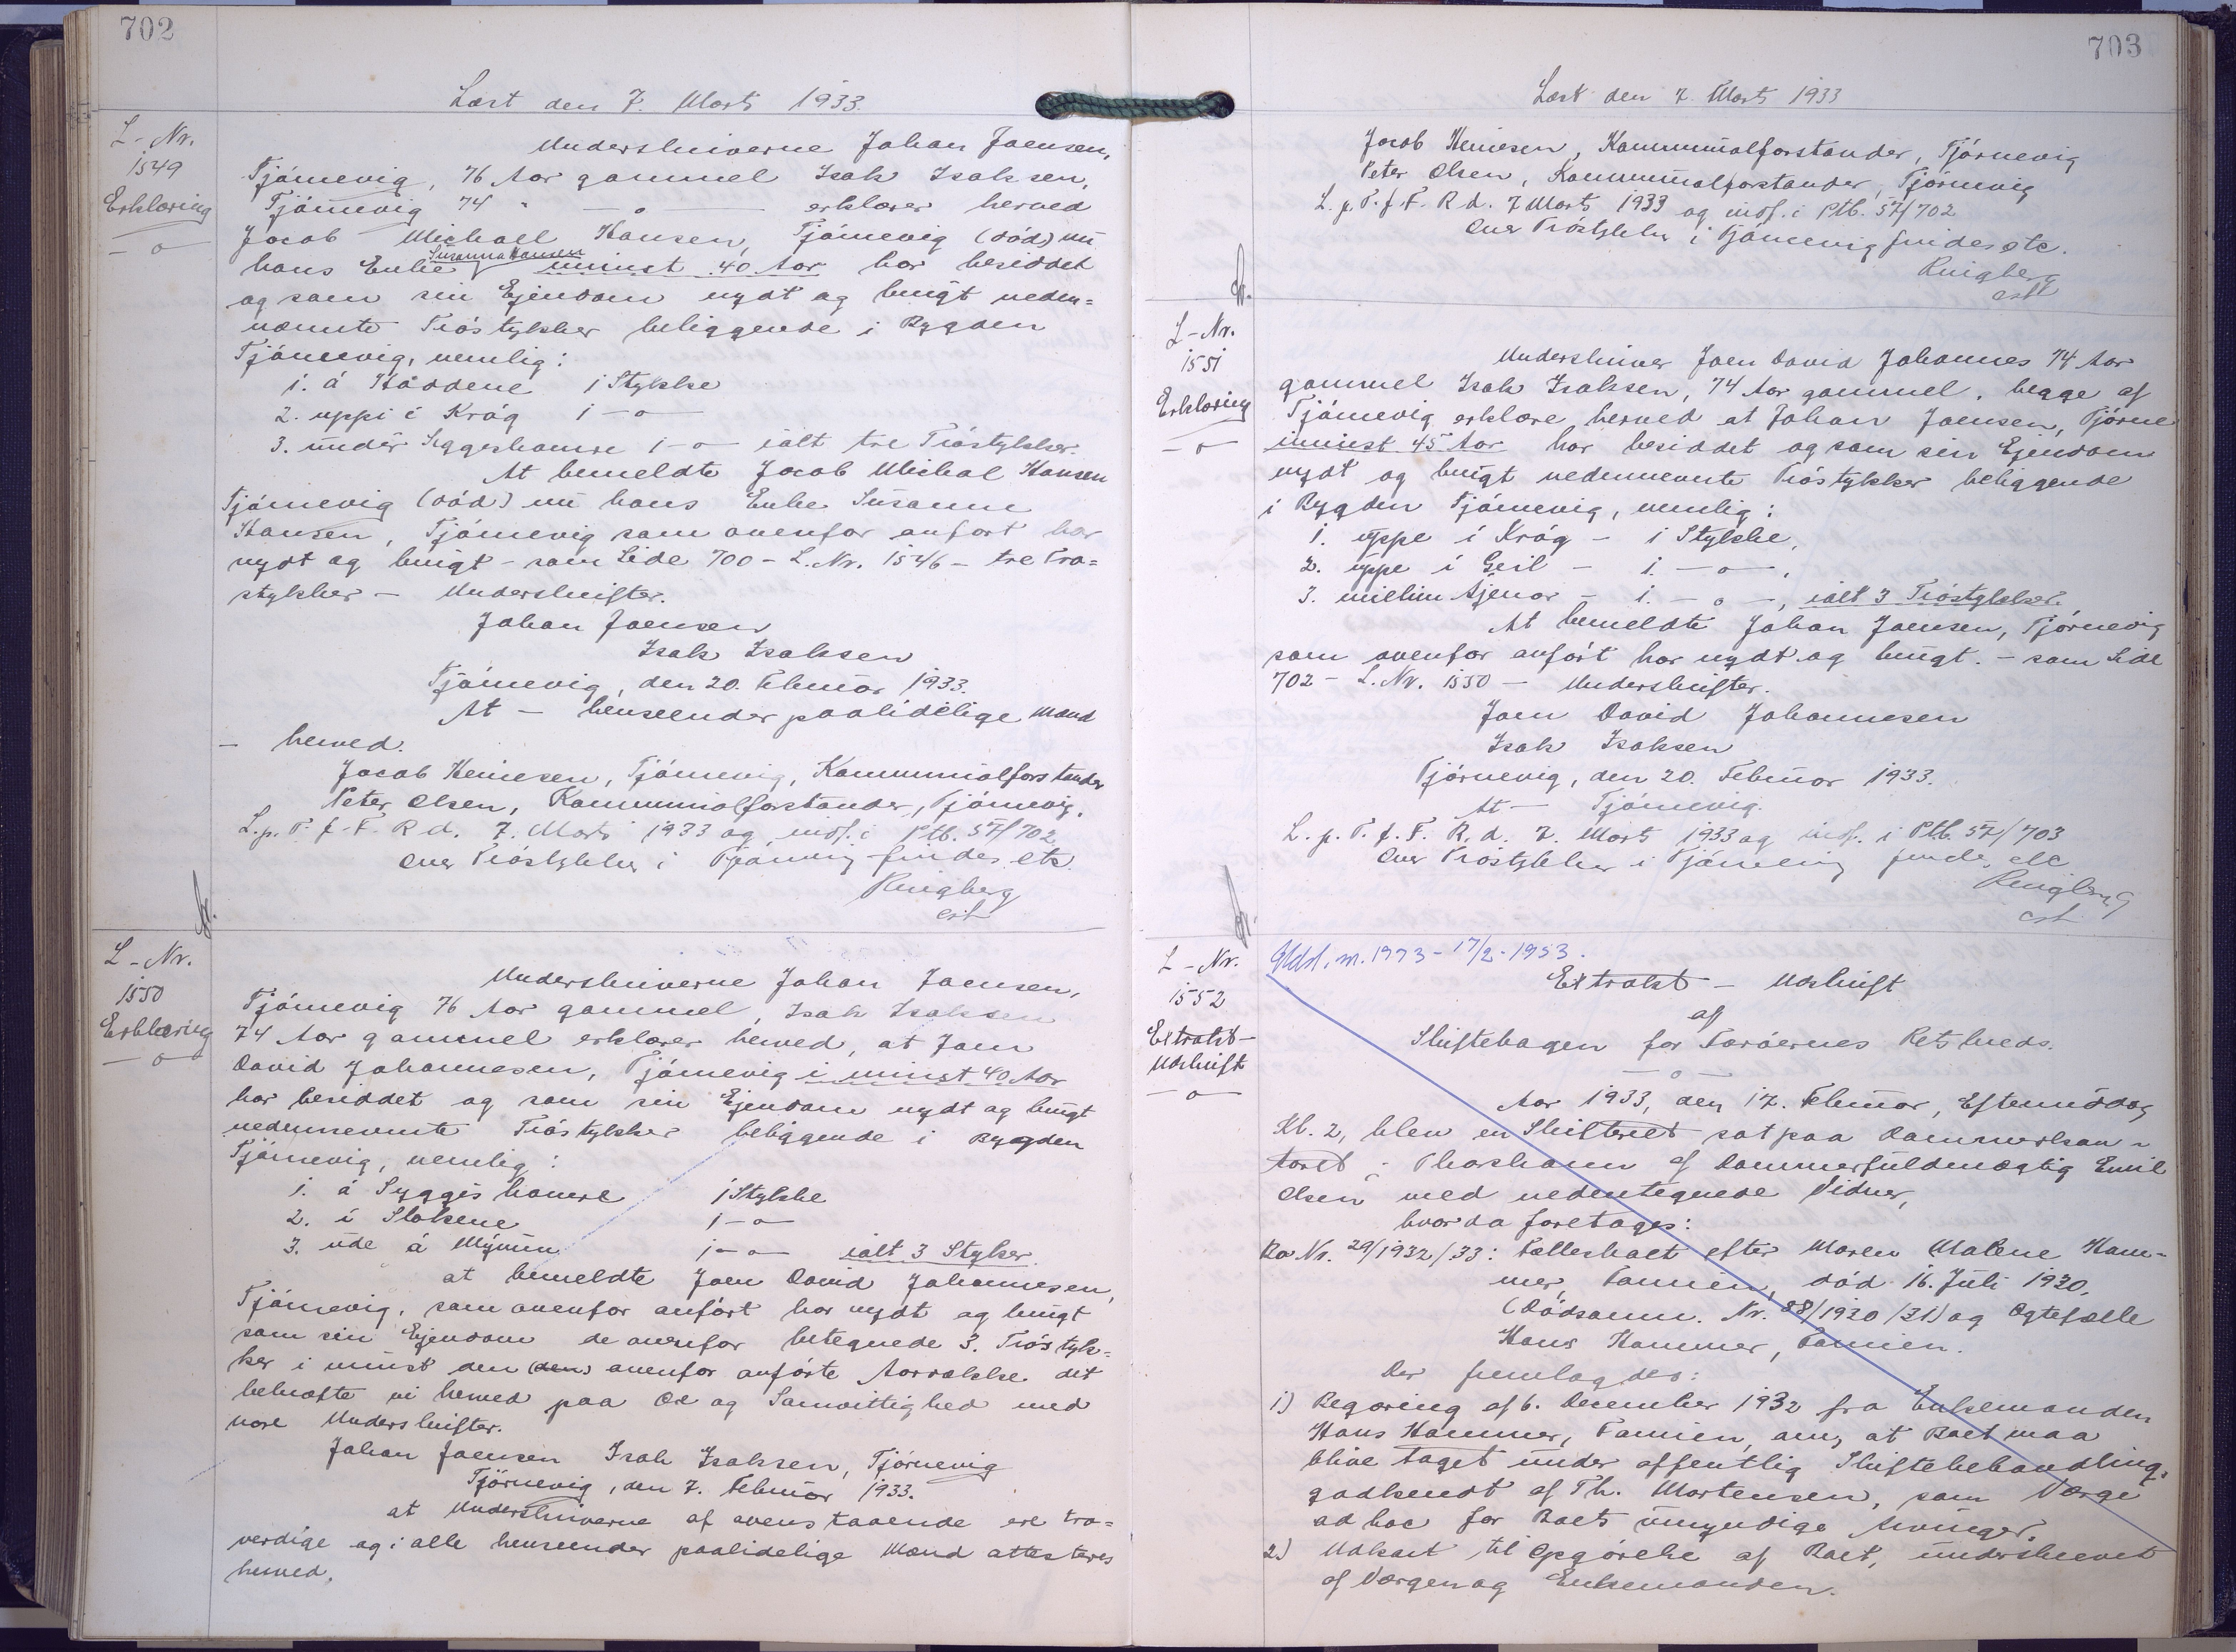 702
Læst den 7. Marts 1933.
L-Nr.
1549
Erklæring
—o
Underskriverne Johan Joensen,
Tjörnevig, 76 Aar gammel Isak Isaksen,
Tjörnevig 74 " —o— erklærer herved
Jacob Michael Hansen, Tjörnevig (död) nu
hans Enke Susanna Hansen i minst 40 Aar har besiddet
og som sin Ejendom nydt og brugt neden=
nævnte Tröstykker beliggende i Bygden
Tjörnevig, nemlig:
1. á Höddene 1 Stykke
2. uppi i Króg 1 —o—
3. undir Siggeshamre 1 —o— ialt tre Tröstykker.
At bemeldte Jacob Michal Hansen
Tjörnevig (död) nu hans Enke Susanne
Hansen, Tjörnevig som ovenfor anfört har
nydt og brugt - som Side 700 - L. Nr. 1546 - tre Trö=
stykker - Underskrifter.
Johan Joensen
Isak Isaksen
Tjörnevig, den 20. Februar 1933.
At — henseender paalidelige Mænd
— herved.
Jacob Heinesen, Tjörnevig, Kommunalforstander
Peter Olsen, Kommunalforstander, Tjörnevig.
L. p. T. f. F. R d. 7. Marts 1933 og indf. i Ptb. 57/702
Over Tröstykker i Tjörnevig findes etc.
Ringberg
cst
L-Nr.
1550
Erklæring
—o
Underskriverne Johan Joensen,
Tjörnevig 76 Aar gammel, Isak Isaksen
74 Aar gammel erklærer herved, at Joen
David Johannesen, Tjörnevig i minst 40 Aar
har besiddet og som sin Ejendom nydt og brugt
nedennævnte Tröstykker beliggende i Bygden
Tjörnevig, nemlig:
1. á Syggis hamre 1 Stykke
2. i Slakene 1 —o—
3. ude á Mýrun 1 —o— ialt 3 Styker
at bemeldte Joen David Johannesen,
Tjörnevig, som ovenfor anfört har nydt og brugt
som sin Ejendom de ovenfor betegnede 3. Tröstyk=
ker i minst den (den) ovenfor anförte Aarrække det
bekræfte vi herved paa Ære og Samvittighed med
vore Underskrifter.
Johan Joensen Isak Isaksen, Tjörnevig
Tjörnevig, den 7. Februar 1933.
at Underskriverne af ovenstaaende ere tro=
verdige og i alle henseender paalidelige Mænd attesteres
herved.
703
Læst den 7. Marts 1933
Jacob Heinesen, Kommunalforstander, Tjörnevig
Peter Olsen, Kommunalforstander, Tjörnevig
L. p. T. f. F. R d. 7 Marts 1933 og indf. i Ptb. 57/702
Over Tröstykker i Tjörnevig findes etc.
Ringberg
cst
L-Nr.
1551
Erklæring
—o
Underskriver Joen David Johannes 74 Aar
gammel Isak Isaksen, 74 Aar gammel, begge af
Tjörnevig erklære herved at Johan Joensen, Tjörne
i minst 45 Aar har besiddet og som sin Ejendom
nydt og brugt nedennevnte Tröstykker beliggende
i Bygden Tjörnevig, nemlig:
1. uppe i Króg - 1 Stykke,
2. uppe i Geil - 1. —o—,
3. miellum Ájenar - 1. —o—, ialt 3 Tröstykker.
At bemeldte Johan Joensen, Tjörnevig
som ovenfor anfört har nydt og brugt. - som Side
702 - L. Nr. 1550 - Underskrifter.
Joen David Johannesen
Isak Isaksen
Tjörnevig, den 20. Februar 1933.
At — Tjörnevig.
L. p. T. f. F. R. d. 7. Marts 1933 og indf. i Ptb. 57/703
Over Tröstykker i Tjörnevig findes etc
Ringberg
cst
L-Nr.
1552
Extrakt-
Udskrift
—o—
Udsl. m. 1973 - 17/2-1953.
Extrakt - Udskrift
af
Skiftebogen for Færöernes Retskreds.
—o—
Aar 1933, den 17. Februar, Eftermiddag
Kl. 2, blev en Skifteret sat paa Dommerkon-
toret i Thorshavn af Dommerfuldmægtig Emil
Olsen med nedentegnede Vidner,
hvorda foretages:
Bo Nr. 29/1932/33: Fællesboet efter Maren Malene Ham-
mer, Famien, död 16. Juli 1930,
(Dödsanm. Nr. 88/1930/31) og Ægtefælle
Hans Hammer, Famien.
Der fremlagdes:
1) Begæring af 6. December 1932 fra Enkemanden
Hans Hammer, Famien, om, at Boet maa
blive taget under offentlig Skiftebehandling,
godkendt af Th. Mortensen, som Værge
ad hoc for Boets umyndige Arvinger.
2.) Udkast til Opgörelse af Boet, underskrevet
af Værgen og Enkemanden.